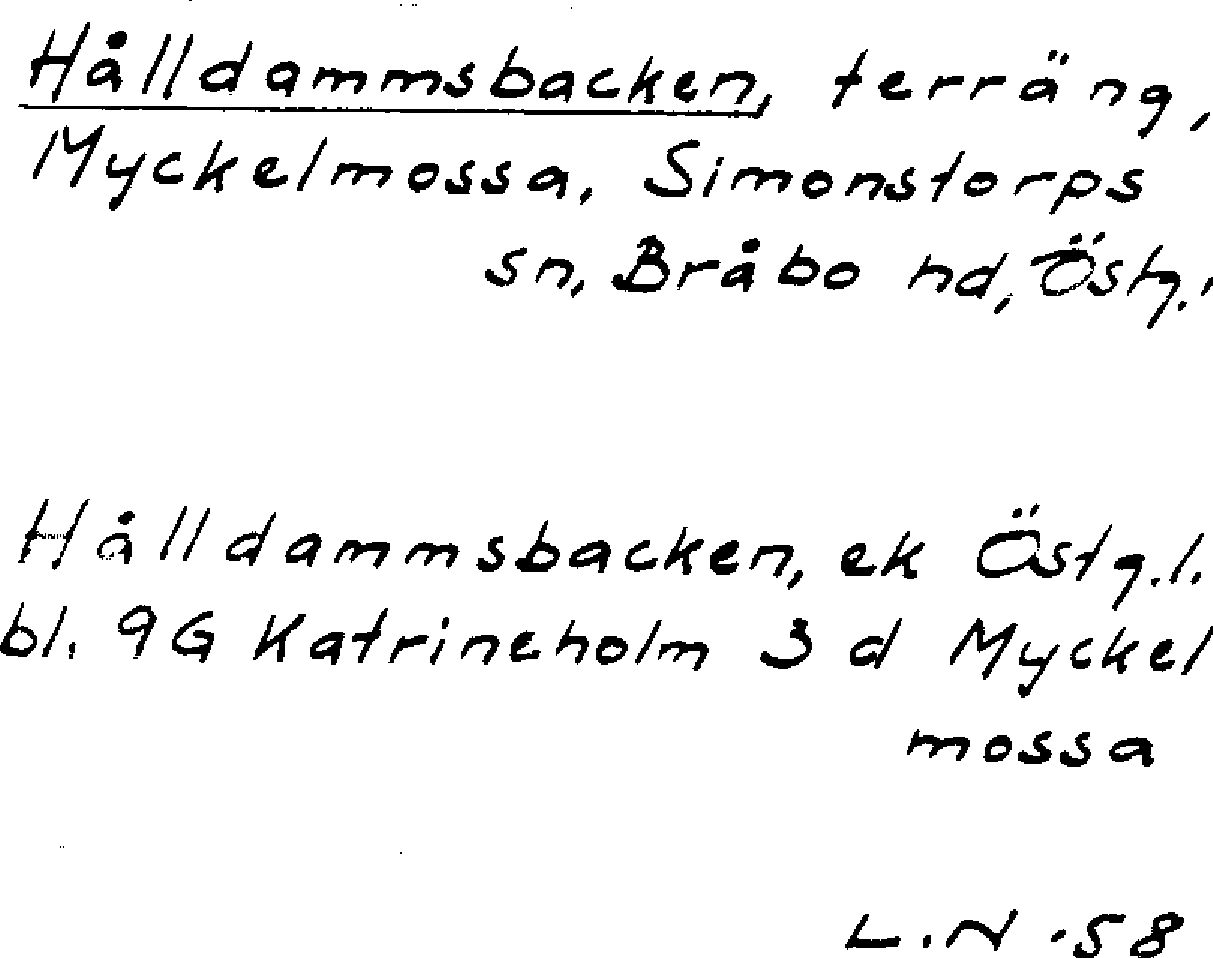 Hålldammsbacken, terräng,
Myckelmossa, Simonstorps
sn, Bråbo hd, Östg.l
Hålldammsbacken, ek Östg.l.
bl. 9G Katrineholm 3 d Myckel
mossa
L.N -58